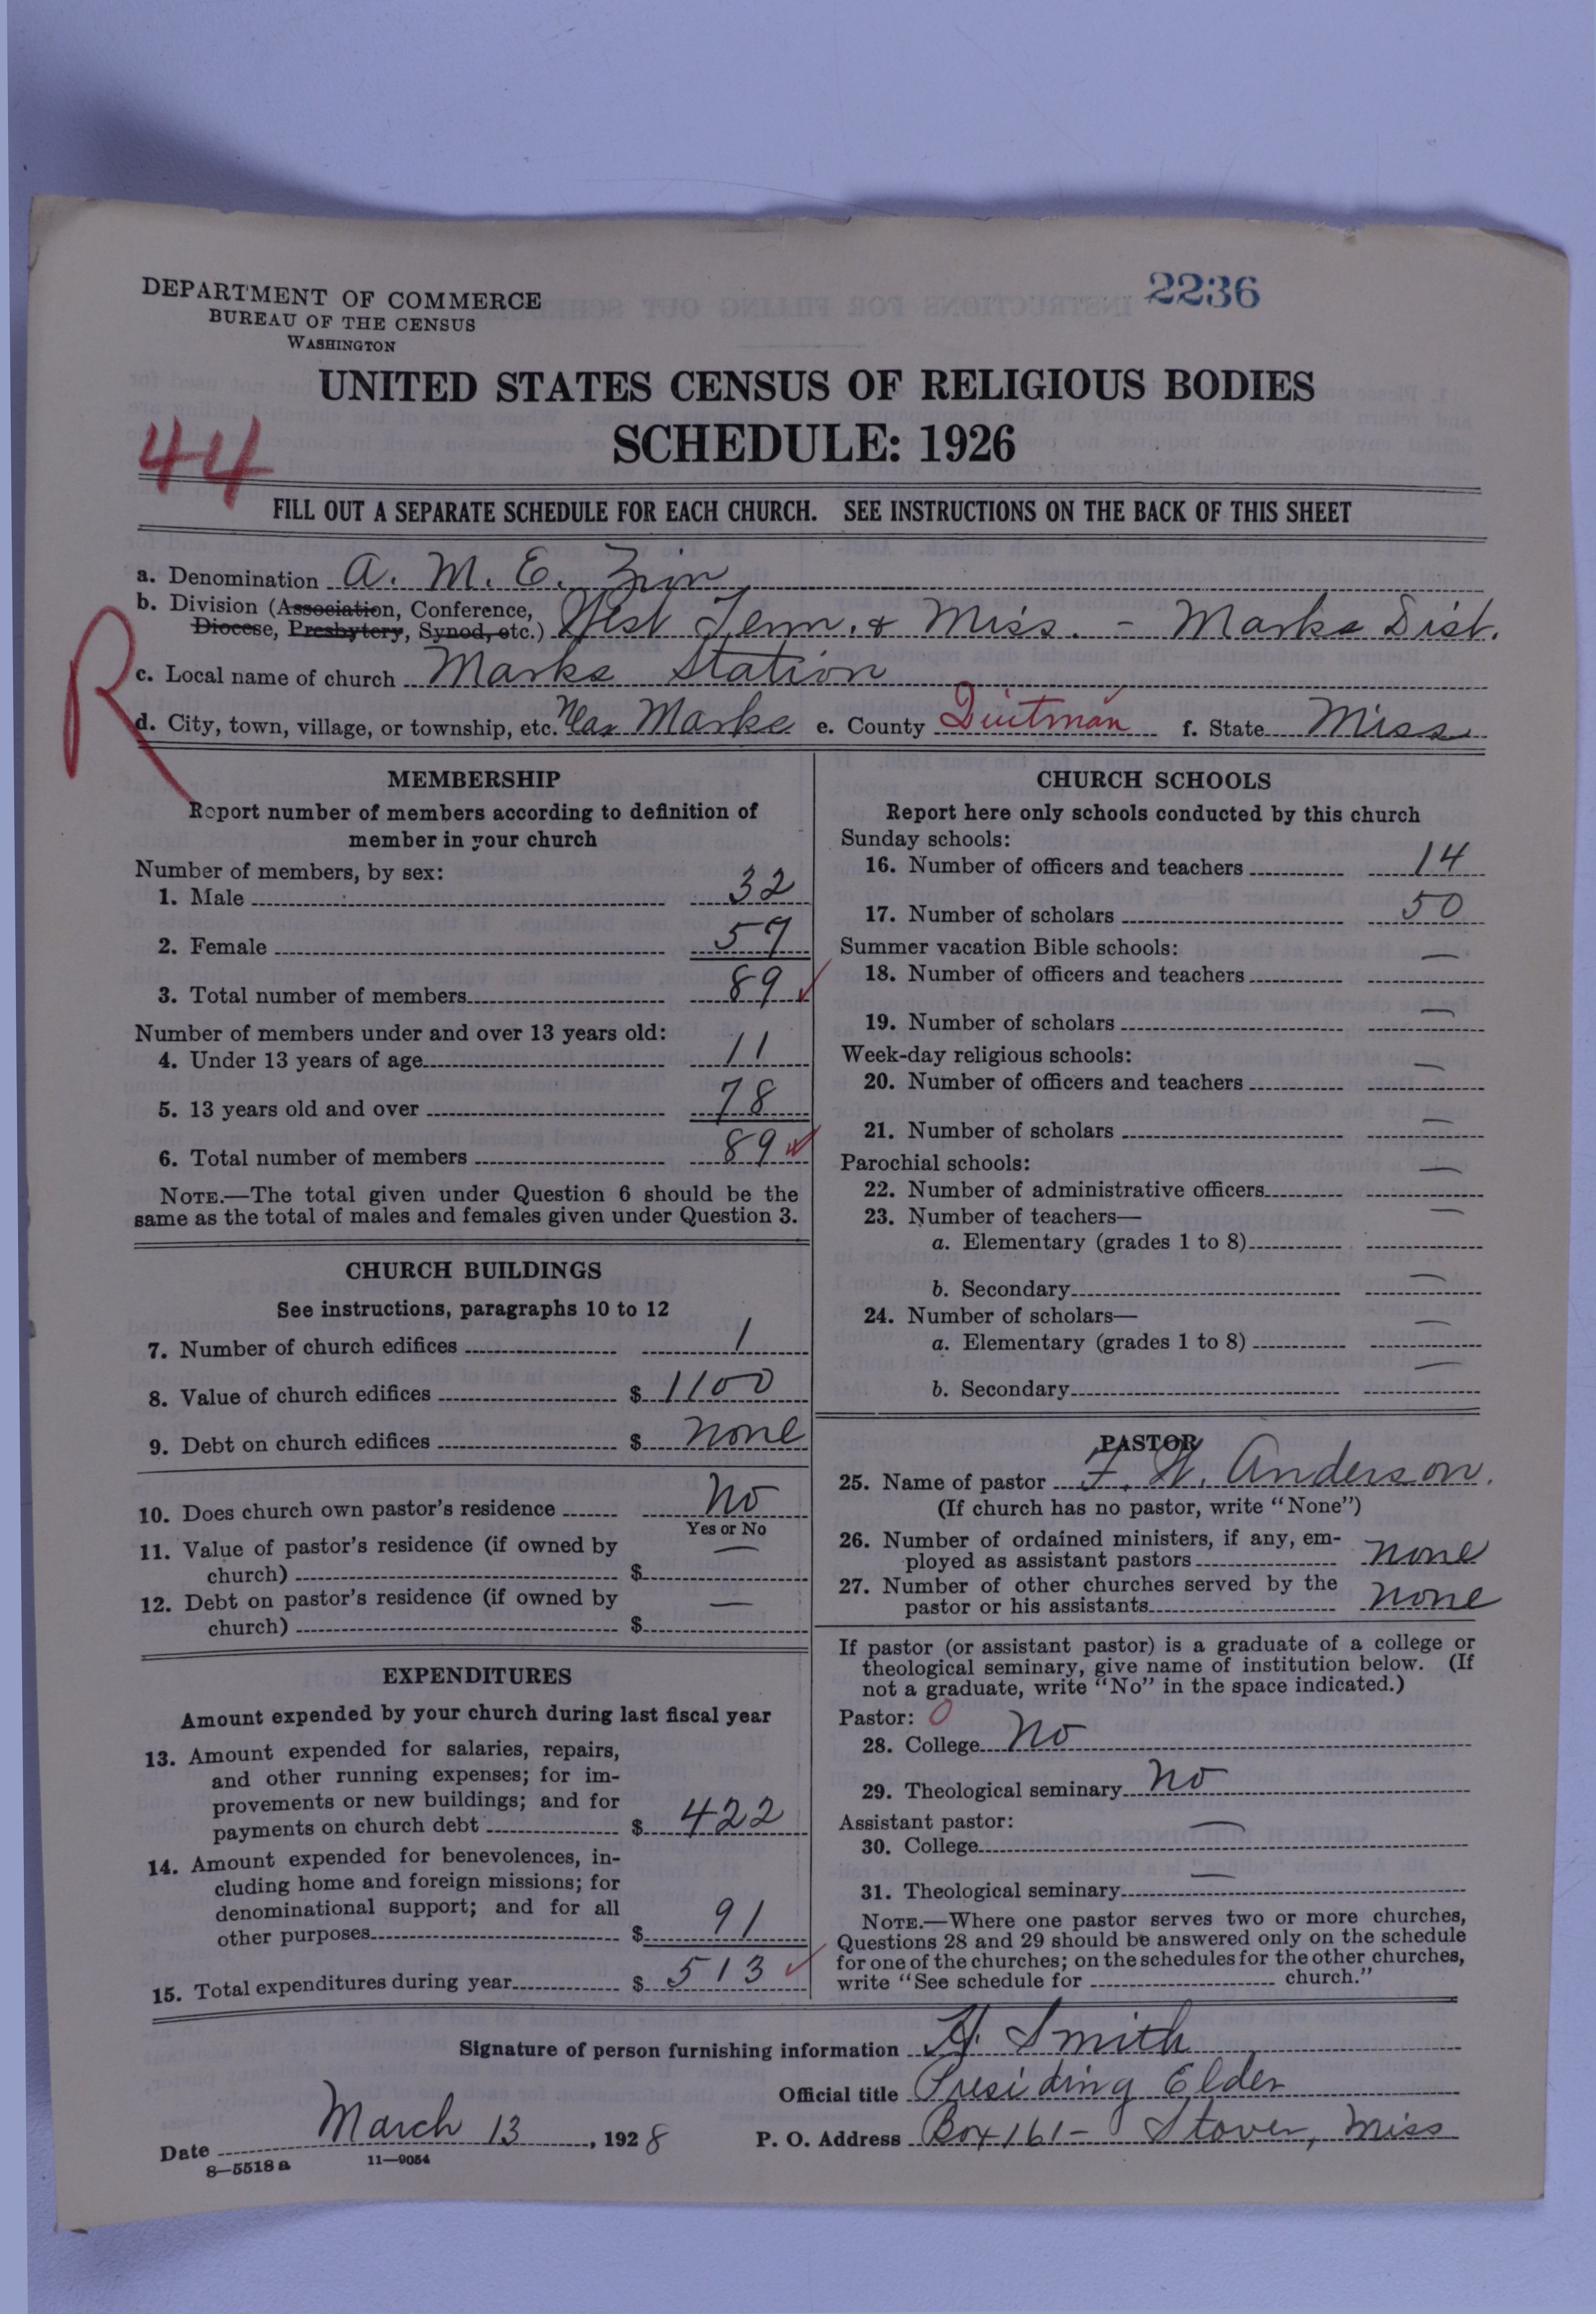 DEPARTMENT OF COMMERCE
BUREAU OF THE CENSUS
WASHINGTON
2236
UNITED STATES CENSUS OF RELIGIOUS BODIES
SCHEDULE: 1926
44
FILL OUT A SEPARATE SCHEDULE FOR EACH CHURCH. SEE INSTRUCTIONS ON THE BACK OF THIS SHEET
R
a. Denomination A. M. E. Zion
b. Division (Association, Conference,
Diocese, Presbytery, Synod, etc.) West Tenn. & Miss. - Marks Dist.
c. Local name of church Marks Station
d. City, town, village, or township, etc. Near Marks e. County Quitman f. State Miss
MEMBERSHIP
Report number of members according to definition of
member in your church
Number of members, by sex:
1. Male 32
2. Female 57
3. Total number of members 89
Number of members under and over 13 years old:
4. Under 13 years of age 11
5. 13 years old and over 78
6. Total number of members 89
NOTE.—The total given under Question 6 should be the
same as the total of males and females given under Question 3.
CHURCH BUILDINGS
See instructions, paragraphs 10 to 12
7. Number of church edifices 1
8. Value of church edifices $ 1100
9. Debt on church edifices $ none
10. Does church own pastor's residence No
Yes or No
11. Value of pastor's residence (if owned by
church) $ —
12. Debt on pastor's residence (if owned by
church) $ —
EXPENDITURES
Amount expended by your church during last fiscal year
13. Amount expended for salaries, repairs,
and other running expenses; for im-
provements or new buildings; and for
payments on church debt $ 422
14. Amount expended for benevolences, in-
cluding home and foreign missions; for
denominational support; and for all
other purposes $ 91
15. Total expenditures during year $ 513
CHURCH SCHOOLS
Report here only schools conducted by this church
Sunday schools:
16. Number of officers and teachers 14
17. Number of scholars 50
Summer vacation Bible schools:
18. Number of officers and teachers —
19. Number of scholars —
Week-day religious schools:
20. Number of officers and teachers —
21. Number of scholars —
Parochial schools:
22. Number of administrative officers —
23. Number of teachers—
a. Elementary (grades 1 to 8) —
b. Secondary —
24. Number of scholars—
a. Elementary (grades 1 to 8) —
b. Secondary —
PASTOR
25. Name of pastor F. W. Anderson.
(If church has no pastor, write "None")
26. Number of ordained ministers, if any, em-
ployed as assistant pastors none
27. Number of other churches served by the
pastor or his assistants none
If pastor (or assistant pastor) is a graduate of a college or
theological seminary, give name of institution below. (If
not a graduate, write "No" in the space indicated.)
Pastor: 0
28. College No
29. Theological seminary No
Assistant pastor:
30. College —
31. Theological seminary —
NOTE.—Where one pastor serves two or more churches,
Questions 28 and 29 should be answered only on the schedule
for one of the churches; on the schedules for the other churches,
write "See schedule for church."
Signature of person furnishing information H. Smith
Official title Presiding Elder
Date March 13, 1928 P. O. Address Box 161 - Stover, Miss
8—5518a 11—9054